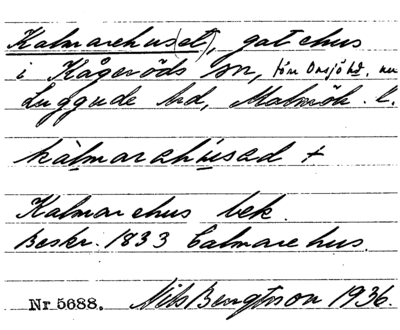 Kalmarehus(et), gatehus
i Kågeröds sn, förr Onsjö hd, nu
Luggude hd, Malmöh. l.
kàlmarahúsad +
Kalmarehus bek.
Beskr. 1833 Calmarehus.
Nr 5688. Nils Bengtsson 1936.